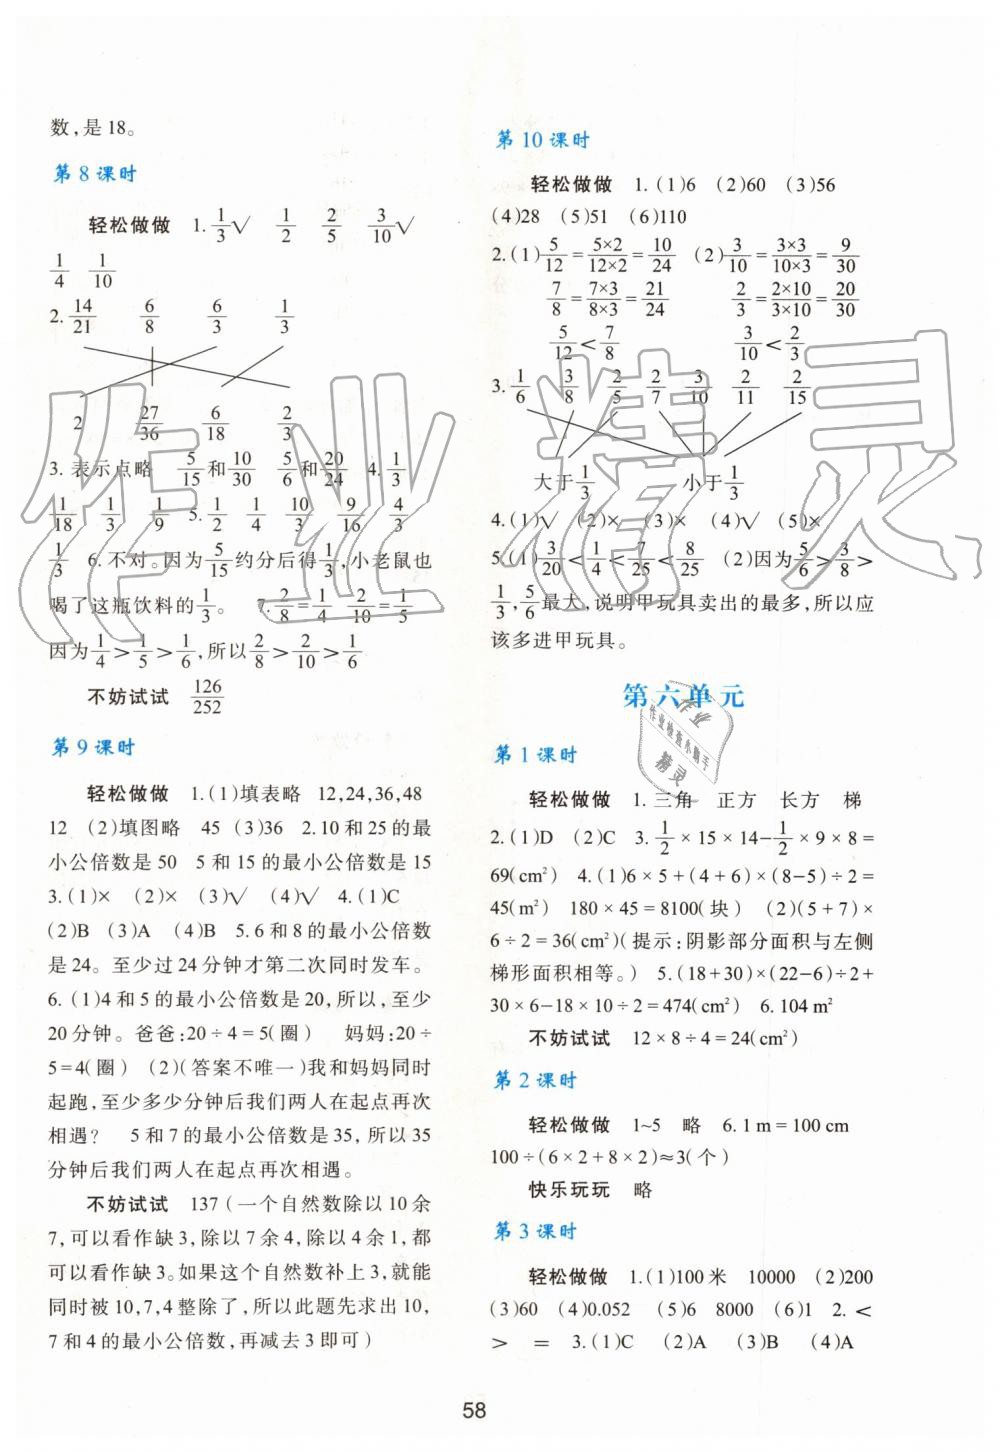 数,是18。
第8课时
轻松做做 1. 1/3√ 1/2 2/5 3/10√
1/4 1/10
2. 14/21 6/8 6/3 1/3
2 27/36 6/18 2/3
3. 表示点略 5/15和10/30 5/6和20/24 4. 1/3
1/18 1/3 1/9 5. 1/2 1/4 10/3 9/16 4/3
1/3 6. 不对。因为5/15约分后得1/3,小老鼠也
喝了这瓶饮料的1/3。 7. 2/8=1/4 2/10=1/5
因为1/4>1/5>1/6,所以2/8>2/10>1/6
不妨试试 126/252
第9课时
轻松做做 1.(1)填表略 12,24,36,48
12 (2)填图略 45 (3)36 2.10和25的最
小公倍数是50 5和15的最小公倍数是15
3.(1)× (2)× (3)√ (4)√ 4.(1)C
(2)B (3)A (4)B 5.6和8的最小公倍数
是24。至少过24分钟才第二次同时发车。
6.(1)4和5的最小公倍数是20,所以,至少
20分钟。爸爸:20÷4=5(圈) 妈妈:20÷
5=4(圈) (2)(答案不唯一)我和妈妈同时
起跑,至少多少分钟后我们两人在起点再次
相遇? 5和7的最小公倍数是35,所以35
分钟后我们两人在起点再次相遇。
不妨试试 137(一个自然数除以10余
7,可以看作缺3,除以7余4,除以4余1,都
可以看作缺3。如果这个自然数补上3,就能
同时被10,7,4整除了,所以此题先求出10,
7和4的最小公倍数,再减去3即可)
第10课时
轻松做做 1.(1)6 (2)60 (3)56
(4)28 (5)51 (6)110
2.(1)5/12=5×2/12×2=10/24 (2)3/10=3×3/10×3=9/30
7/8=7×3/8×3=21/24 2/3=2×10/3×10=20/30
5/12<7/8 3/10<2/3
3. 1/6 3/8 2/5 2/7 3/10 2/11 2/15
大于1/3 小于1/3
4.(1)√ (2)× (3)× (4)√ (5)×
5.(1)3/20<1/4<7/25<8/25 (2)因为5/6>3/8>
1/3,5/6最大,说明甲玩具卖出的最多,所以应
该多进甲玩具。
第六单元
第1课时
轻松做做 1.三角 正方 长方 梯
2.(1)D (2)C 3. 1/2×15×14-1/2×9×8=
69(cm²) 4.(1)6×5+(4+6)×(8-5)÷2=
45(m²) 180×45=8100(块) (2)(5+7)×
6÷2=36(cm²)(提示:阴影部分面积与左侧
梯形面积相等。) 5.(18+30)×(22-6)÷2+
30×6-18×10÷2=474(cm²) 6.104 m²
不妨试试 12×8÷4=24(cm²)
第2课时
轻松做做 1~5 略 6.1 m=100 cm
100÷(6×2+8×2)≈3(个)
快乐玩玩 略
第3课时
轻松做做 1.(1)100米 10000 (2)200
(3)60 (4)0.052 (5)6 8000 (6)1 2.<
> = 3.(1)C (2)A (3)B (4)A
58
作业精灵
作业
作业检查小助手
精灵